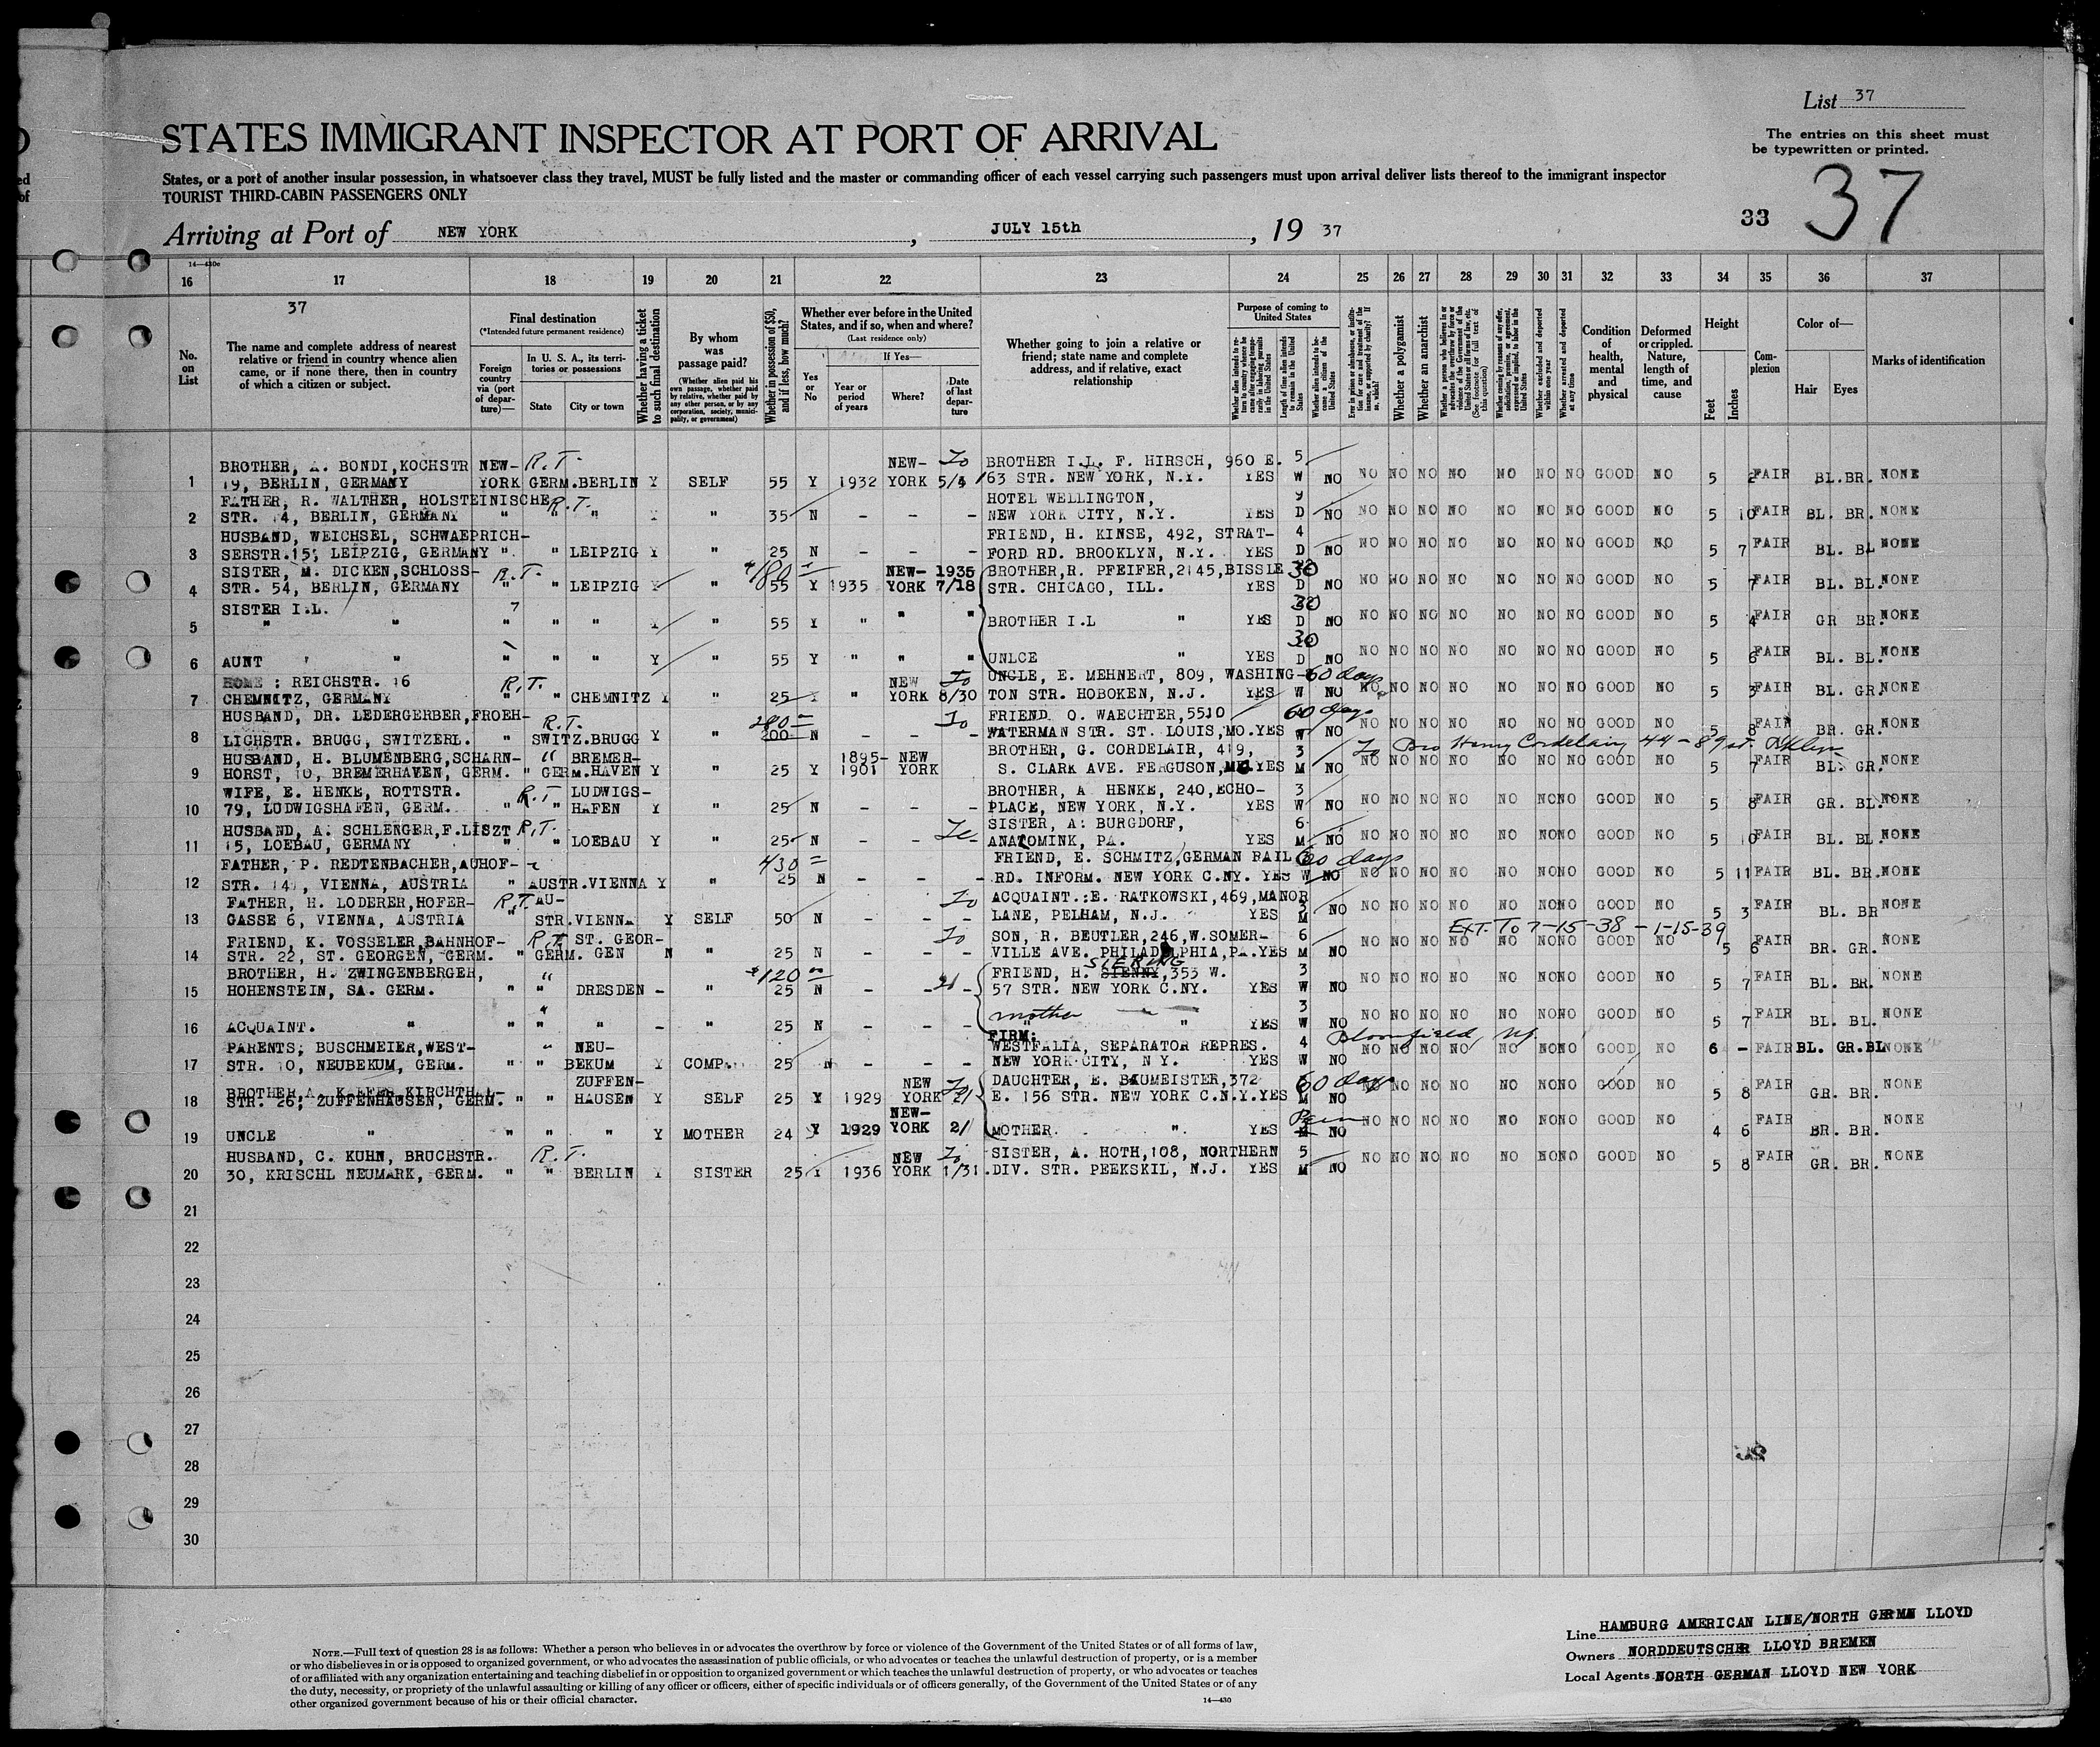 List 37
The entries on this sheet must
be typewritten or printed.
STATES IMMIGRANT INSPECTOR AT PORT OF ARRIVAL
States, or a port of another insular possession, in whatsoever class they travel, MUST be fully listed and the master or commanding officer of each vessel carrying such passengers must upon arrival deliver lists thereof to the immigrant inspector
TOURIST THIRD-CABIN PASSENGERS ONLY
33 37
Arriving at Port of NEW YORK, JULY 15th, 19 37
16 17 18 19 20 21 22 23 24 25 26 27 28 29 30 31 32 33 34 35 36 37
No. on List
37
The name and complete address of nearest
relative or friend in country whence alien
came, or if none there, then in country
of which a citizen or subject.
Final destination
(*Intended future permanent residence)
Foreign country via (port of departure)—
In U. S. A., its territories or possessions
State City or town
Whether having a ticket to such final destination
By whom was passage paid?
(Whether alien paid his own passage, whether paid by relative, whether paid by any other person, or by any corporation, society, municipality, or government)
Whether in possession of $50, and if less, how much?
Whether ever before in the United
States, and if so, when and where?
(Last residence only)
Yes or No
If Yes—
Year or period of years
Where?
Date of last departure
Whether going to join a relative or
friend; state name and complete
address, and if relative, exact
relationship
Purpose of coming to United States
Whether a polygamist
Whether an anarchist
Whether arrested and deported at any time
Condition of health, mental and physical
Deformed or crippled. Nature, length of time, and cause
Height
Feet Inches
Complexion
Color of—
Hair Eyes
Marks of identification
BROTHER, A. BONDI,KOCHSTR NEW- R.T. NEW- To BROTHER I.L. F. HIRSCH, 960 E. 5
1 19, BERLIN, GERMANY YORK GERM.BERLIN Y SELF 55 Y 1932 YORK 5/4 163 STR. NEW YORK, N.Y. YES W NO NO NO NO NO NO NO NO GOOD NO 5 2 FAIR BL.BR. NONE
FATHER, R. WALTHER, HOLSTEINISCHE R.T. HOTEL WELLINGTON, 9
2 STR. 14, BERLIN, GERMANY " " " Y " 35 N - - - NEW YORK CITY, N.Y. YES D NO NO NO NO NO NO NO NO GOOD NO 5 10 FAIR BL. BR. NONE
HUSBAND, WEICHSEL, SCHWAEPRICH- FRIEND, H. KINSE, 492, STRAT- 4
3 SERSTR.15, LEIPZIG, GERMANY " " LEIPZIG Y " 25 N - - - FORD RD. BROOKLYN, N.Y. YES D NO NO NO NO NO NO NO NO GOOD NO 5 7 FAIR BL. BL NONE
SISTER, M. DICKEN,SCHLOSS- R.T. 180 NEW- 1935 BROTHER,R. PFEIFER,2145,BISSLE 30
4 STR. 54, BERLIN, GERMANY " " LEIPZIG Y " 55 Y 1935 YORK 7/18 STR. CHICAGO, ILL. YES D NO NO NO NO NO NO NO NO GOOD NO 5 7 FAIR BL. BL. NONE
SISTER I.L. 30
5 " " " " " Y " 55 Y " " " BROTHER I.L " YES D NO NO NO NO NO NO NO NO GOOD NO 5 4 FAIR GR BR. NONE
30
6 AUNT " " " " " Y " 55 Y " " " UNLCE " YES D NO NO NO NO NO NO NO NO GOOD NO 5 6 FAIR BL. BL. NONE
HOME : REICHSTR. 16 R.T. NEW To UNCLE, E. MEHNERT, 809, WASHING- 60 days
7 CHEMNITZ, GERMANY " " CHEMNITZ Y " 25 Y " YORK 8/30 TON STR. HOBOKEN, N.J. YES W NO NO NO NO NO NO NO NO GOOD NO 5 3 FAIR BL. GR. NONE
HUSBAND, DR. LEDERGERBER,FROEH- R.T. 280 To FRIEND O. WAECHTER,5510 60 days
8 LICHSTR. BRUGG, SWITZERL. " SWITZ.BRUGG Y " 200 N - - - WATERMAN STR. ST. LOUIS,MO.YES W NO NO NO NO NO NO NO NO GOOD NO 5 8 FAIR BR. GR. NONE
HUSBAND, H. BLUMENBERG,SCHARN- " BREMER- 1895- NEW BROTHER, G. CORDELAIR, 419, 3 To Bro Henry Cordelair 44-89 st. Bklyn
9 HORST, 10, BREMERHAVEN, GERM. " GERM.HAVEN Y " 25 Y 1901 YORK S. CLARK AVE. FERGUSON, YES M NO NO NO NO NO NO NO NO GOOD NO 5 7 FAIR BL. GR. NONE
WIFE, E. HENKE, ROTTSTR. R.T LUDWIGS- BROTHER, A HENKE, 240,ECHO- 3
10 79, LUDWIGSHAFEN, GERM. " " HAFEN Y " 25 N - - - PLACE, NEW YORK, N.Y. YES W NO NO NO NO NO NO NO NO GOOD NO 5 8 FAIR GR. BL. NONE
HUSBAND, A. SCHLENGER,F.LISZT R.T. To SISTER, A. BURGDORF, 6
11 15, LOEBAU, GERMANY " " LOEBAU Y " 25 N - - - ANATOMINK, PA. YES M NO NO NO NO NO NO NO NO GOOD NO 5 10 FAIR BL. BL NONE
FATHER, P. REDTENBACHER,AUHOF- 430 FRIEND, E. SCHMITZ,GERMAN RAIL 60 days
12 STR. 141, VIENNA, AUSTRIA " AUSTR.VIENNA Y " 25 N - - - RD. INFORM. NEW YORK C.NY. YES W NO NO NO NO NO NO NO NO GOOD NO 5 11 FAIR BL. BR. NONE
FATHER, H. LODERER,HOFER- R.T. AU- To ACQUAINT.:E. RATKOWSKI,469,MANOR
13 GASSE 6, VIENNA, AUSTRIA " STR.VIENNA Y SELF 50 N - - - LANE, PELHAM, N.J. YES M NO NO NO NO NO NO NO NO GOOD NO 5 3 FAIR BL. BR NONE
Ext. To 7-15-38 - 1-15-39
FRIEND, K. VOSSELER,BAHNHOF- R.T. ST. GEOR- To SON, R. BEUTLER,246,W.SOMER- 6
14 STR. 22, ST. GEORGEN, GERM. " GERM. GEN N " 25 N - - - VILLE AVE. PHILADELPHIA,PA.YES M NO NO NO NO NO NO NO NO GOOD NO 5 6 FAIR BR. GR. NONE
SIERING
BROTHER, H. ZWINGENBERGER, " $120 FRIEND, H. SIENNY,353 W. 3
15 HOHENSTEIN, SA. GERM. " " DRESDEN - " 25 N - - - 57 STR. NEW YORK C.NY. YES W NO NO NO NO NO NO NO NO GOOD NO 5 7 FAIR BL. BR. NONE
mother 3
16 ACQUAINT. " " " " - " 25 N - - - " " YES W NO NO NO NO NO NO NO NO GOOD NO 5 7 FAIR BL. BL. NONE
FIRM: Bloomfield, NJ
PARENTS; BUSCHMEIER,WEST- " NEU- WESTFALIA, SEPARATOR REPRES. 4
17 STR. 10, NEUBEKUM, GERM. " " BEKUM Y COMP. 25 N NEW YORK CITY, N Y. YES W NO NO NO NO NO NO NO NO GOOD NO 6 - FAIR BL. GR.BL NONE
BROTHER,A. KIRCHTHAL- ZUFFEN- NEW To DAUGHTER, E. BAUMEISTER,372 60 days
18 STR. 26, ZUFFENHAUSEN, GERM. " " HAUSEN Y SELF 25 Y 1929 YORK 21 E. 156 STR. NEW YORK C.N.Y.YES M NO NO NO NO NO NO NO NO GOOD NO 5 8 FAIR GR. BR. NONE
NEW-
19 UNCLE " " " " Y MOTHER 24 Y 1929 YORK 21 MOTHER. " YES NO NO NO NO NO NO NO NO GOOD NO 4 6 FAIR BR. BR. NONE
HUSBAND, C. KUHN, BRUCHSTR. R.T. NEW To SISTER, A. HOTH,108, NORTHERN 5
20 30, KRISCHL NEUMARK, GERM. " " BERLIN Y SISTER 25 Y 1936 YORK 1/31 DIV. STR. PEEKSKIL, N.J. YES M NO NO NO NO NO NO NO NO GOOD NO 5 8 FAIR GR. BR. NONE
21
22
23
24
25
26
27
28
29
30
NOTE.—Full text of question 28 is as follows: Whether a person who believes in or advocates the overthrow by force or violence of the Government of the United States or of all forms of law,
or who disbelieves in or is opposed to organized government, or who advocates the assassination of public officials, or who advocates or teaches the unlawful destruction of property, or is a member
of or affiliated with any organization entertaining and teaching disbelief in or opposition to organized government or which teaches the unlawful destruction of property, or who advocates or teaches
the duty, necessity, or propriety of the unlawful assaulting or killing of any officer or officers, either of specific individuals or of officers generally, of the Government of the United States or of any
other organized government because of his or their official character.
14—430
Line HAMBURG AMERICAN LINE/NORTH GERMAN LLOYD
Owners NORDDEUTSCHER LLOYD BREMEN
Local Agents NORTH GERMAN LLOYD NEW YORK